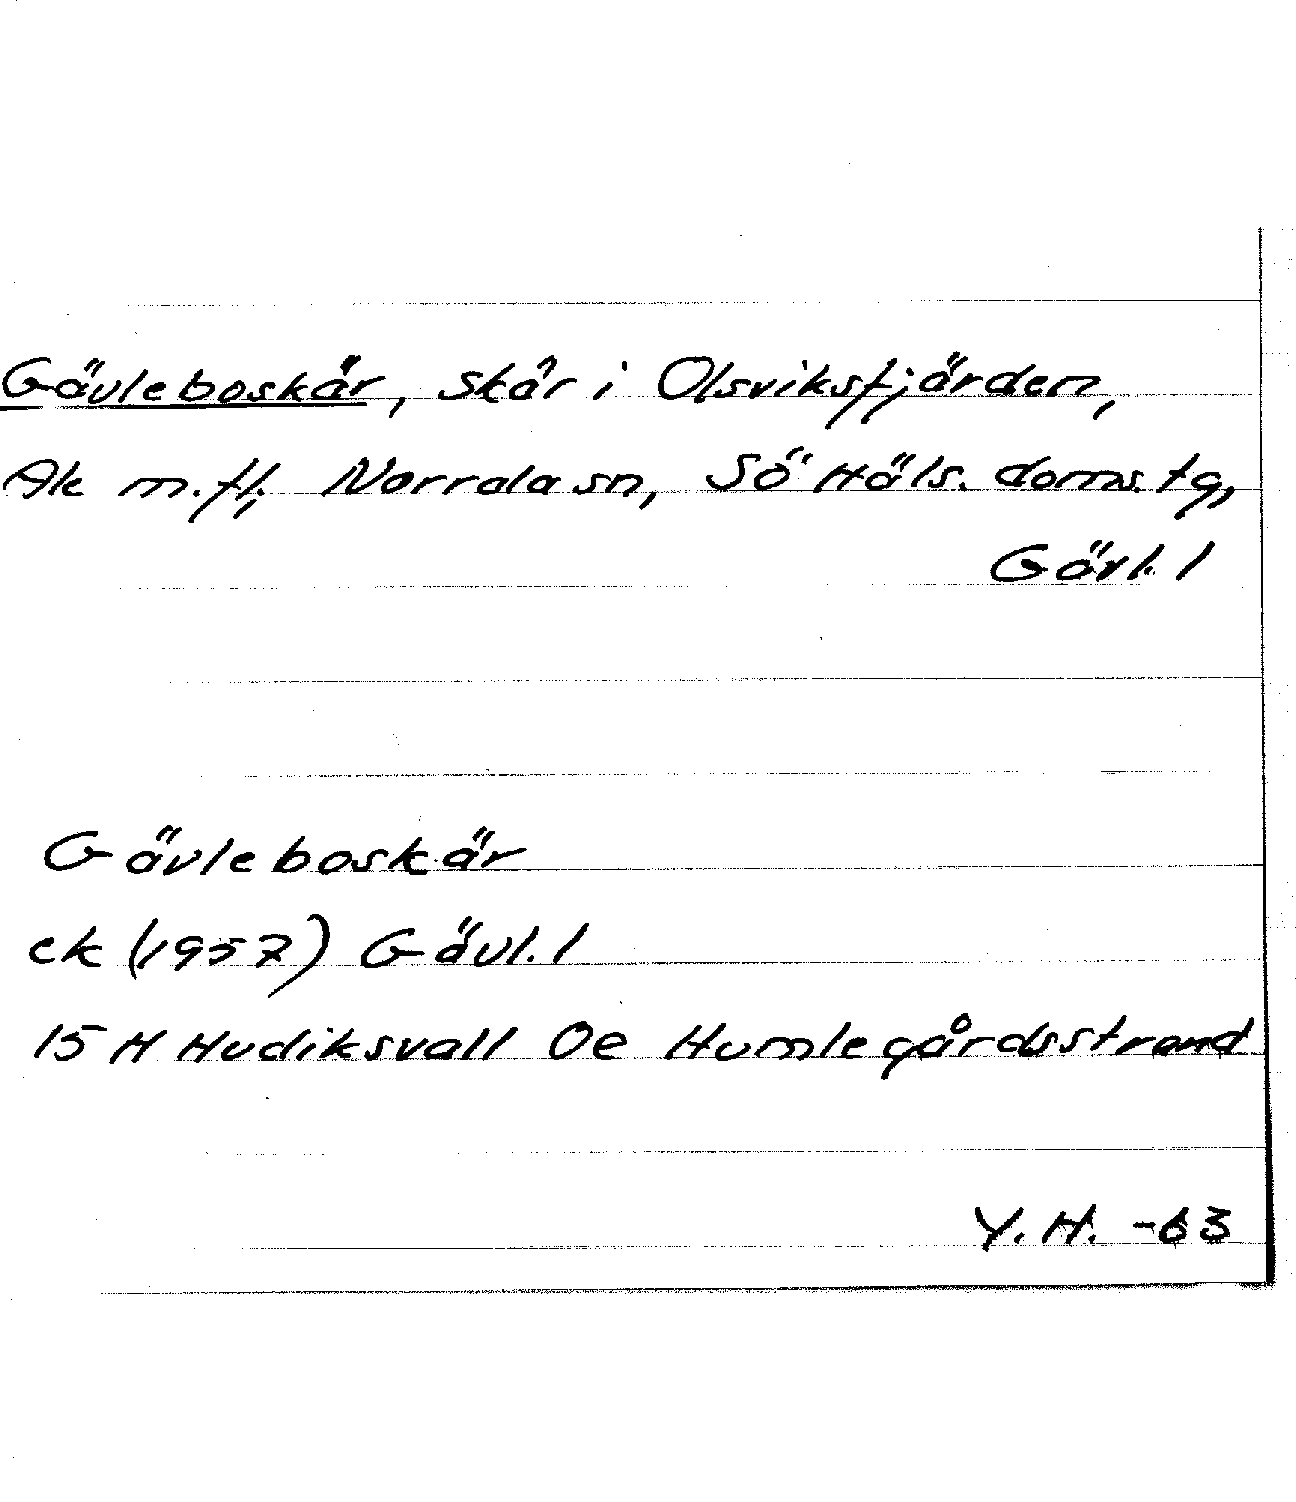 Gävleboskär, skär i Olsviksfjärden,
Ale m.fl., Norrala sn, Sö Häls. doms. tg,
Gävl. l
Gävleboskär
ek (1957) Gävl. l
15 H Hudiksvall Oe Humlegårdsstrand
Y.H. -63